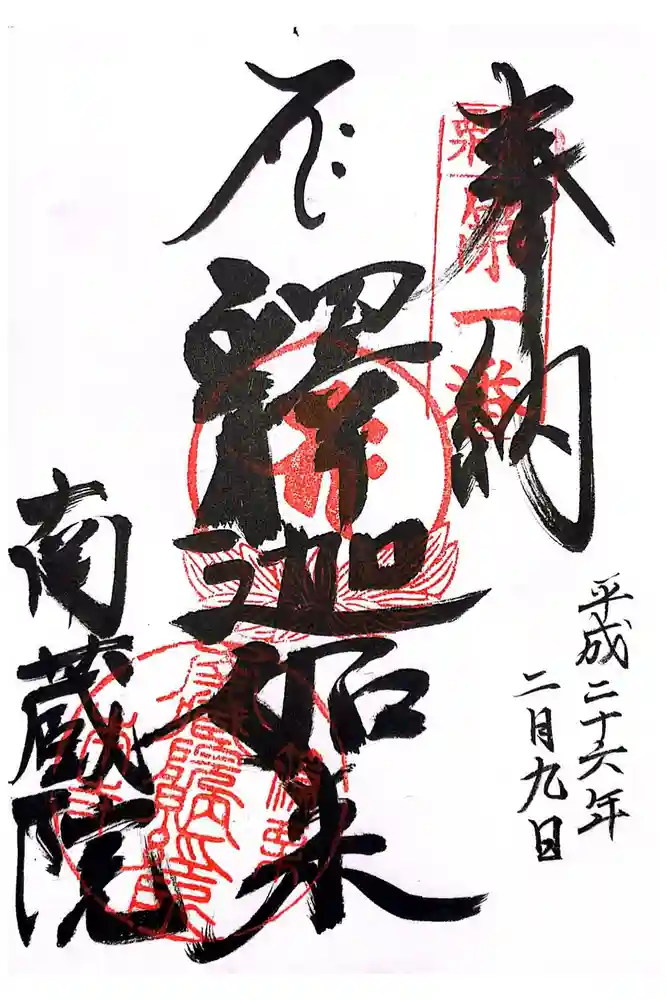 奉納
第一番
平成二十六年
二月九日
釋迦如来
南蔵院